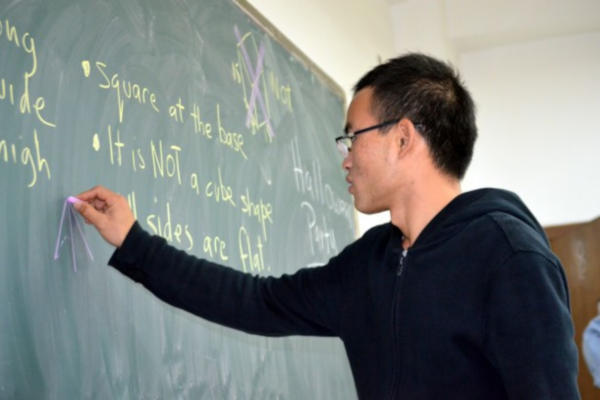 ong
wide
high
• square at the base
• It is NOT a cube shape
sides are flat.
15
Not
Halloween
Party